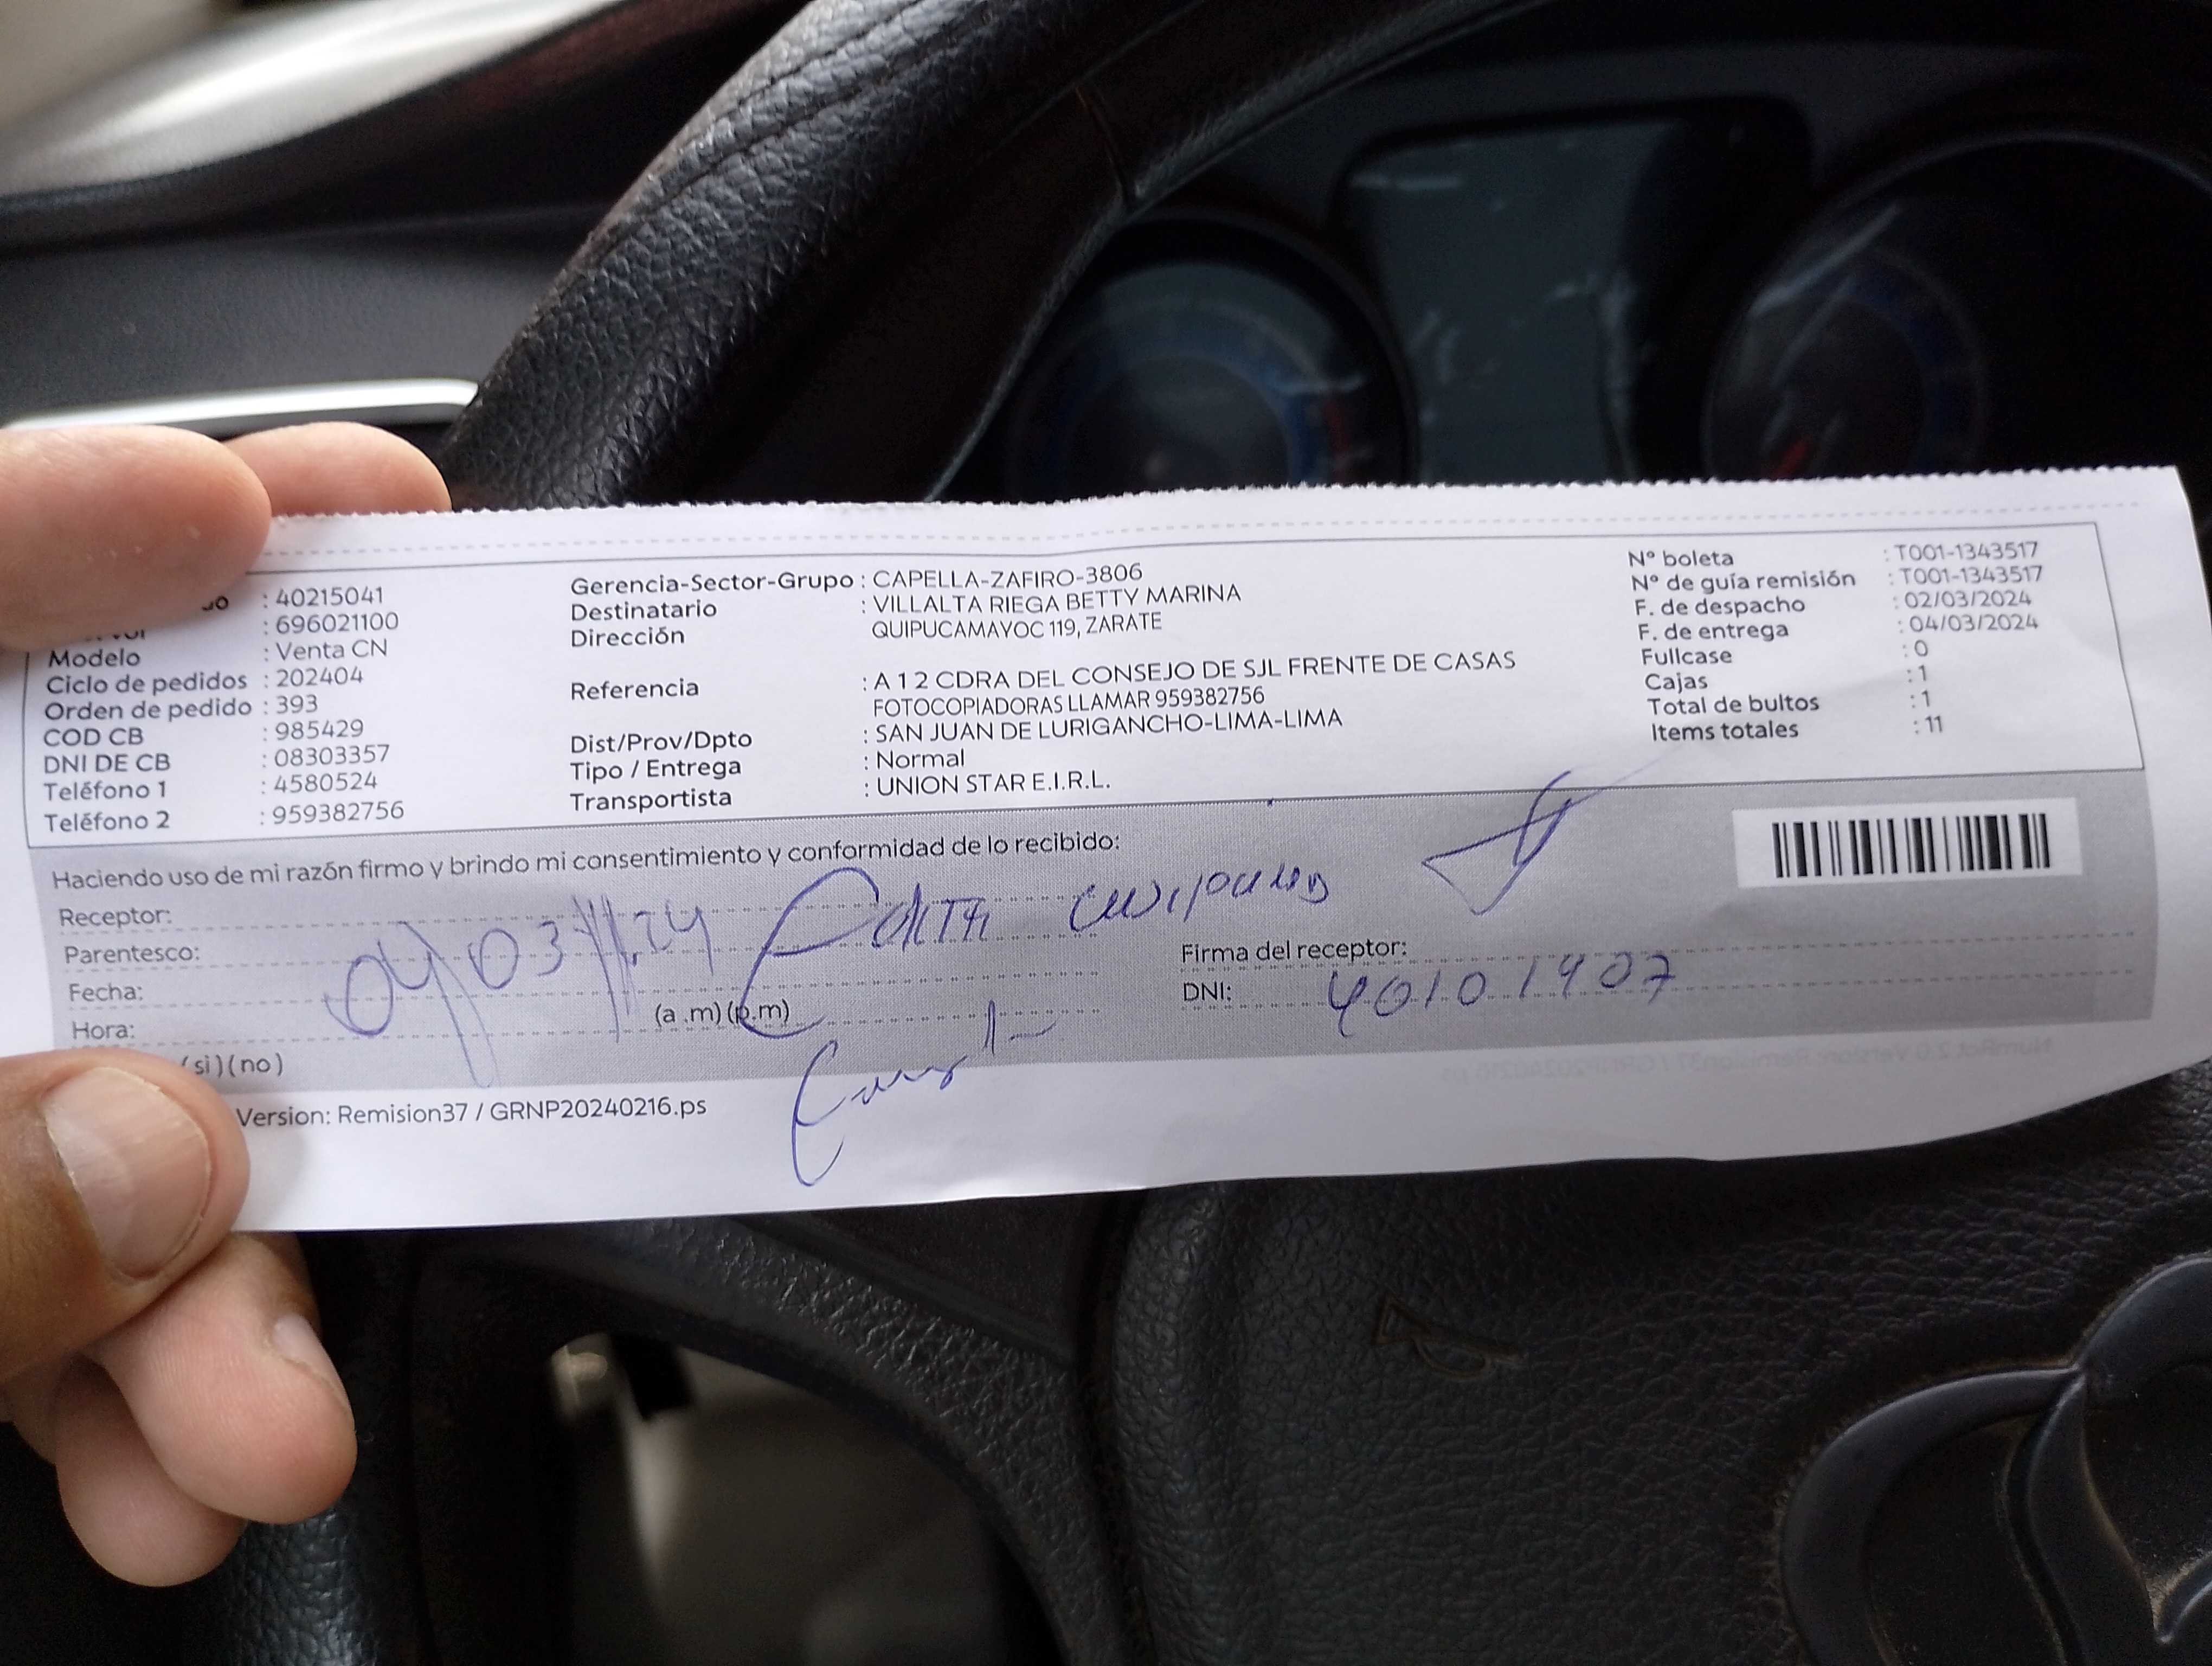 : 40215041
: 696021100
Modelo : Venta CN
Ciclo de pedidos : 202404
Orden de pedido : 393
COD CB : 985429
DNI DE CB : 08303357
Teléfono 1 : 4580524
Teléfono 2 : 959382756
Gerencia-Sector-Grupo : CAPELLA-ZAFIRO-3806
Destinatario : VILLALTA RIEGA BETTY MARINA
Dirección QUIPUCAMAYOC 119, ZARATE
Referencia : A 1 2 CDRA DEL CONSEJO DE SJL FRENTE DE CASAS
FOTOCOPIADORAS LLAMAR 959382756
Dist/Prov/Dpto : SAN JUAN DE LURIGANCHO-LIMA-LIMA
Tipo / Entrega : Normal
Transportista : UNION STAR E.I.R.L.
N° boleta : T001-1343517
N° de guía remisión : T001-1343517
F. de despacho : 02/03/2024
F. de entrega : 04/03/2024
Fullcase : 0
Cajas : 1
Total de bultos : 1
Items totales : 11
Haciendo uso de mi razón firmo y brindo mi consentimiento y conformidad de lo recibido:
Receptor:
Parentesco:
Fecha:
Hora: (a .m) (p.m)
(si) (no)
Firma del receptor:
DNI: 40101407
Version: Remision37 / GRNP20240216.ps